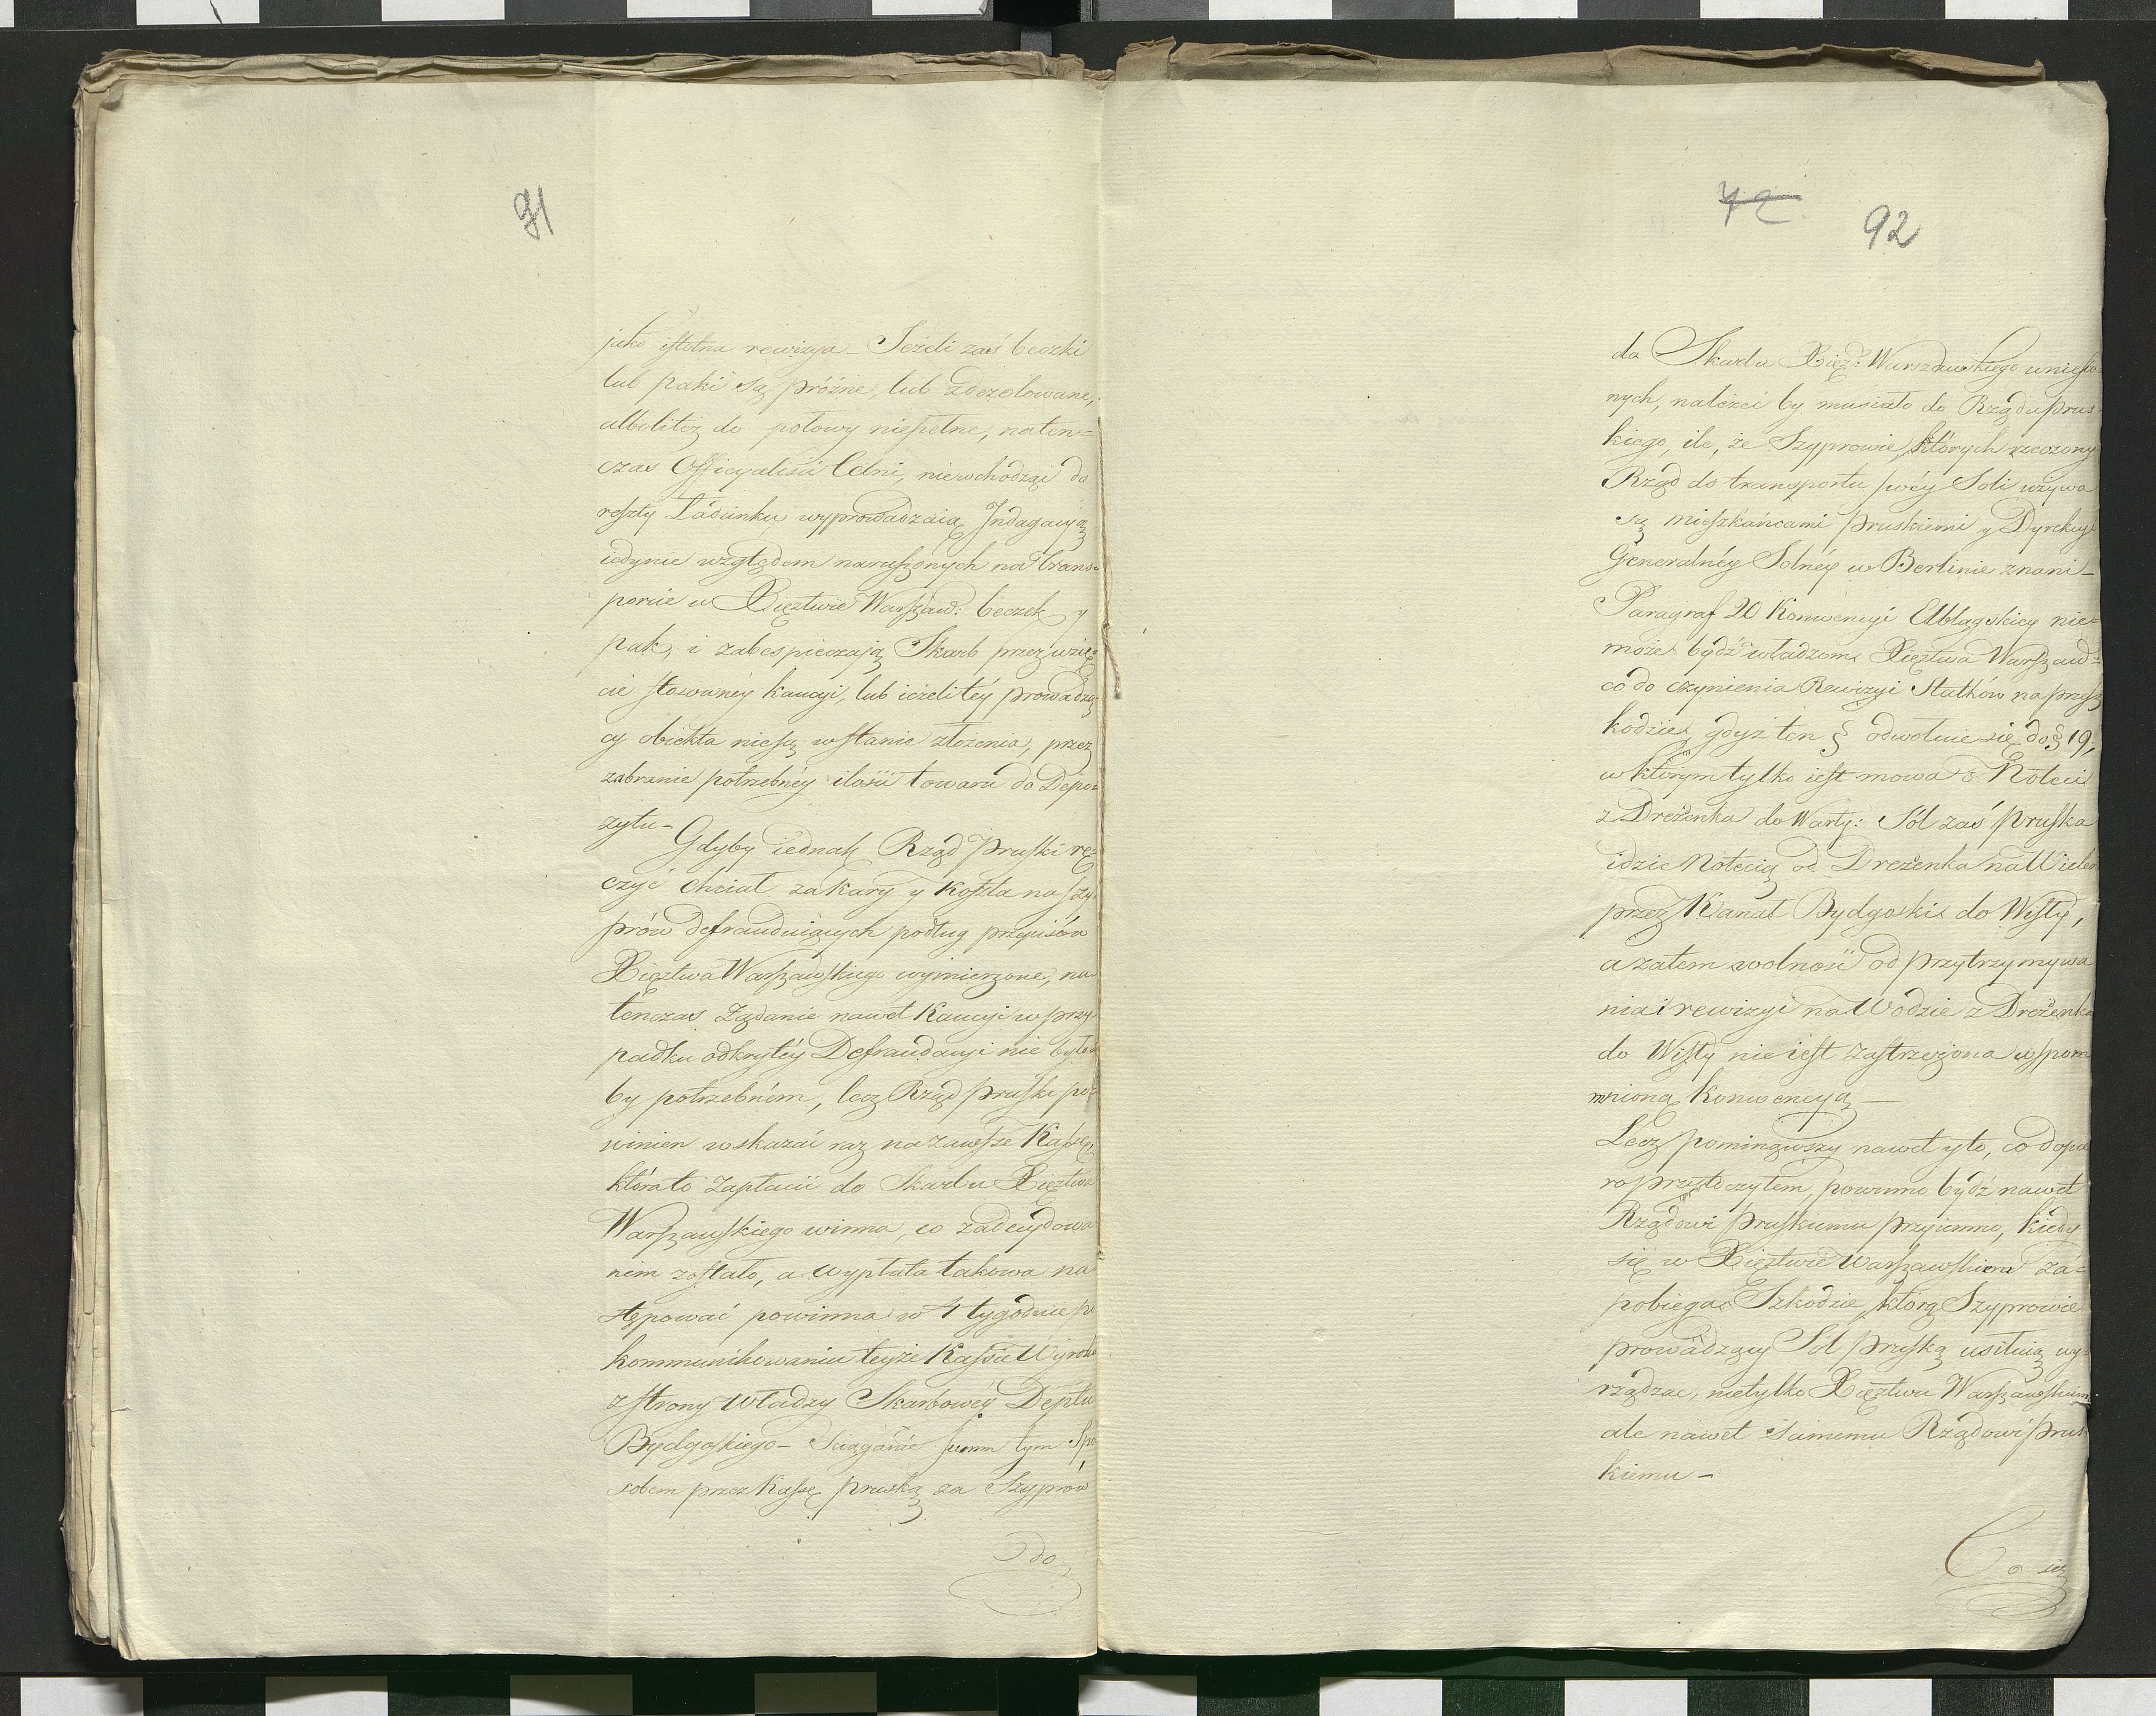 91
jako istotna rewizyja – Jeżeli zaś beczki
lub paki są próżne, lub zdezelowane,
albolitéż do połowy niepełne, naten=
czas Officyaliści Celni, niewchodząc do
reszty Ładunku wyprowadzaią Jndagacyją
iedynie względem naruszonych na trans=
porcie w Xięztwie Warszaw: beczek y
pak, i zabespieczają Skarb przez wzię=
cie stosownéy kaucyi, lub ieżeli téy prowadzą
cy obiekta niesą wstanie złożenia, przez
zabranie potrzebnéy ilości towaru do Depo=
zytu –
Gdyby iednak Rząd Pruski rę
czyć chciał za kary y koszta na Szy
prów defrauduiących podług przepisów
Xięztwa Warszawskiego wymierzone, na
tenczas żądanie nawet Kaucyi w przy
padku odkrytéy Defraudacyi nie było
by potrzebném, lecz Rząd Pruski po=
winien wskazać raz na zawsze Kassę,
która to zapłacić do Skarbu Xięztwa
Warszawskiego winna, co zadecydowa
nem zostało, a wypłata takowa na
stępować powinna w 4 tygodnie po
kommunikowaniu teyże Kassie Wyroku
z strony Władzy Skarbowéy Deptu
Bydgoskiego – Sciąganie summ tym Spo
sobem przez Kassę pruską za Szyprów
do
72
92
do Skarbu Xięz: Warszawskiego wniesio
nych, należeć by musiało do Rządu prus=
kiego, ile, że Szyprowie, których rzeczony
Rząd do transportu swéy Soli używa
są mieszkańcami pruskiemi y Dyrekcyi
Generalnéy Solnéy w Berlinie znani –
Paragraf 20 Konwencyi Elblągskiey nie=
może bydź władzom Xięztwa Warszaw=
co do czynienia Rewizyi Statków na przesz
kodzie, gdyż ten § odwołuie się do § 19,
w którym tylko iest mowa o Noteci
z Dreżenka do Warty: Sól zaś pruska
idzie Notecią od Dreżenka na Wieleń
przez Kanał Bydgoski do Wisły,
a zatém wolność od przytrzymywa
nia i rewizyi na Wodzie z Dreżenka
do Wisły nie iest zastrzeżona wspom
nioną konwencyą –
Lecz pominąwszy nawet y to, co dopie
ro przytoczyłem, powinno bydź nawet
Rządowi pruskiemu przyiemno, kiedy
się w Xięztwie Warszawskiem za=
pobiega Szkodzie, którą Szyprowie
prowadzący Sól pruską usiłuią wy
rządzac, nietylko Xięztwu Warszawskiem
ale nawet samemu Rządowi prus
kiemu –
Co się